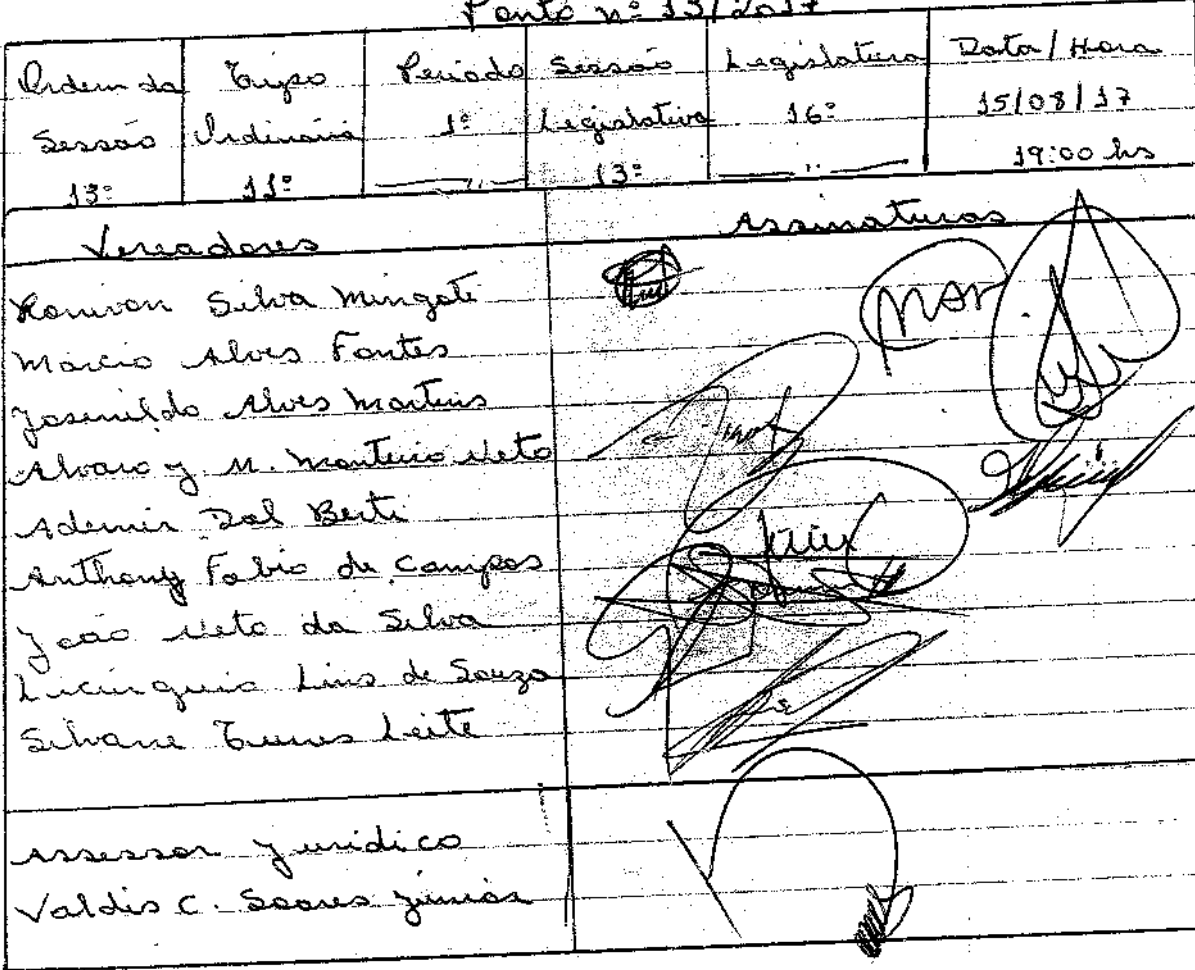 Ponto nº 13/2017
Ordem da Sessão 13ª
Tipo Ordinária 11ª
Período 1º
Sessão Legislativa 13ª
Legislatura 16ª
Data/Hora 15/08/17 19:00 hs
Vereadores
Assinaturas
Ronivon Silva Mingoti
Marcio Alves Fontes
Josenildo Alves Martins
Alvaro J. M. Monteiro Neto
Ademir Dal Berti
Anthony Fabio de Campos
João Neto da Silva
Lins de Souza
Silvane Leite
Assessor Juridico
Valdis C. Soares Júnior